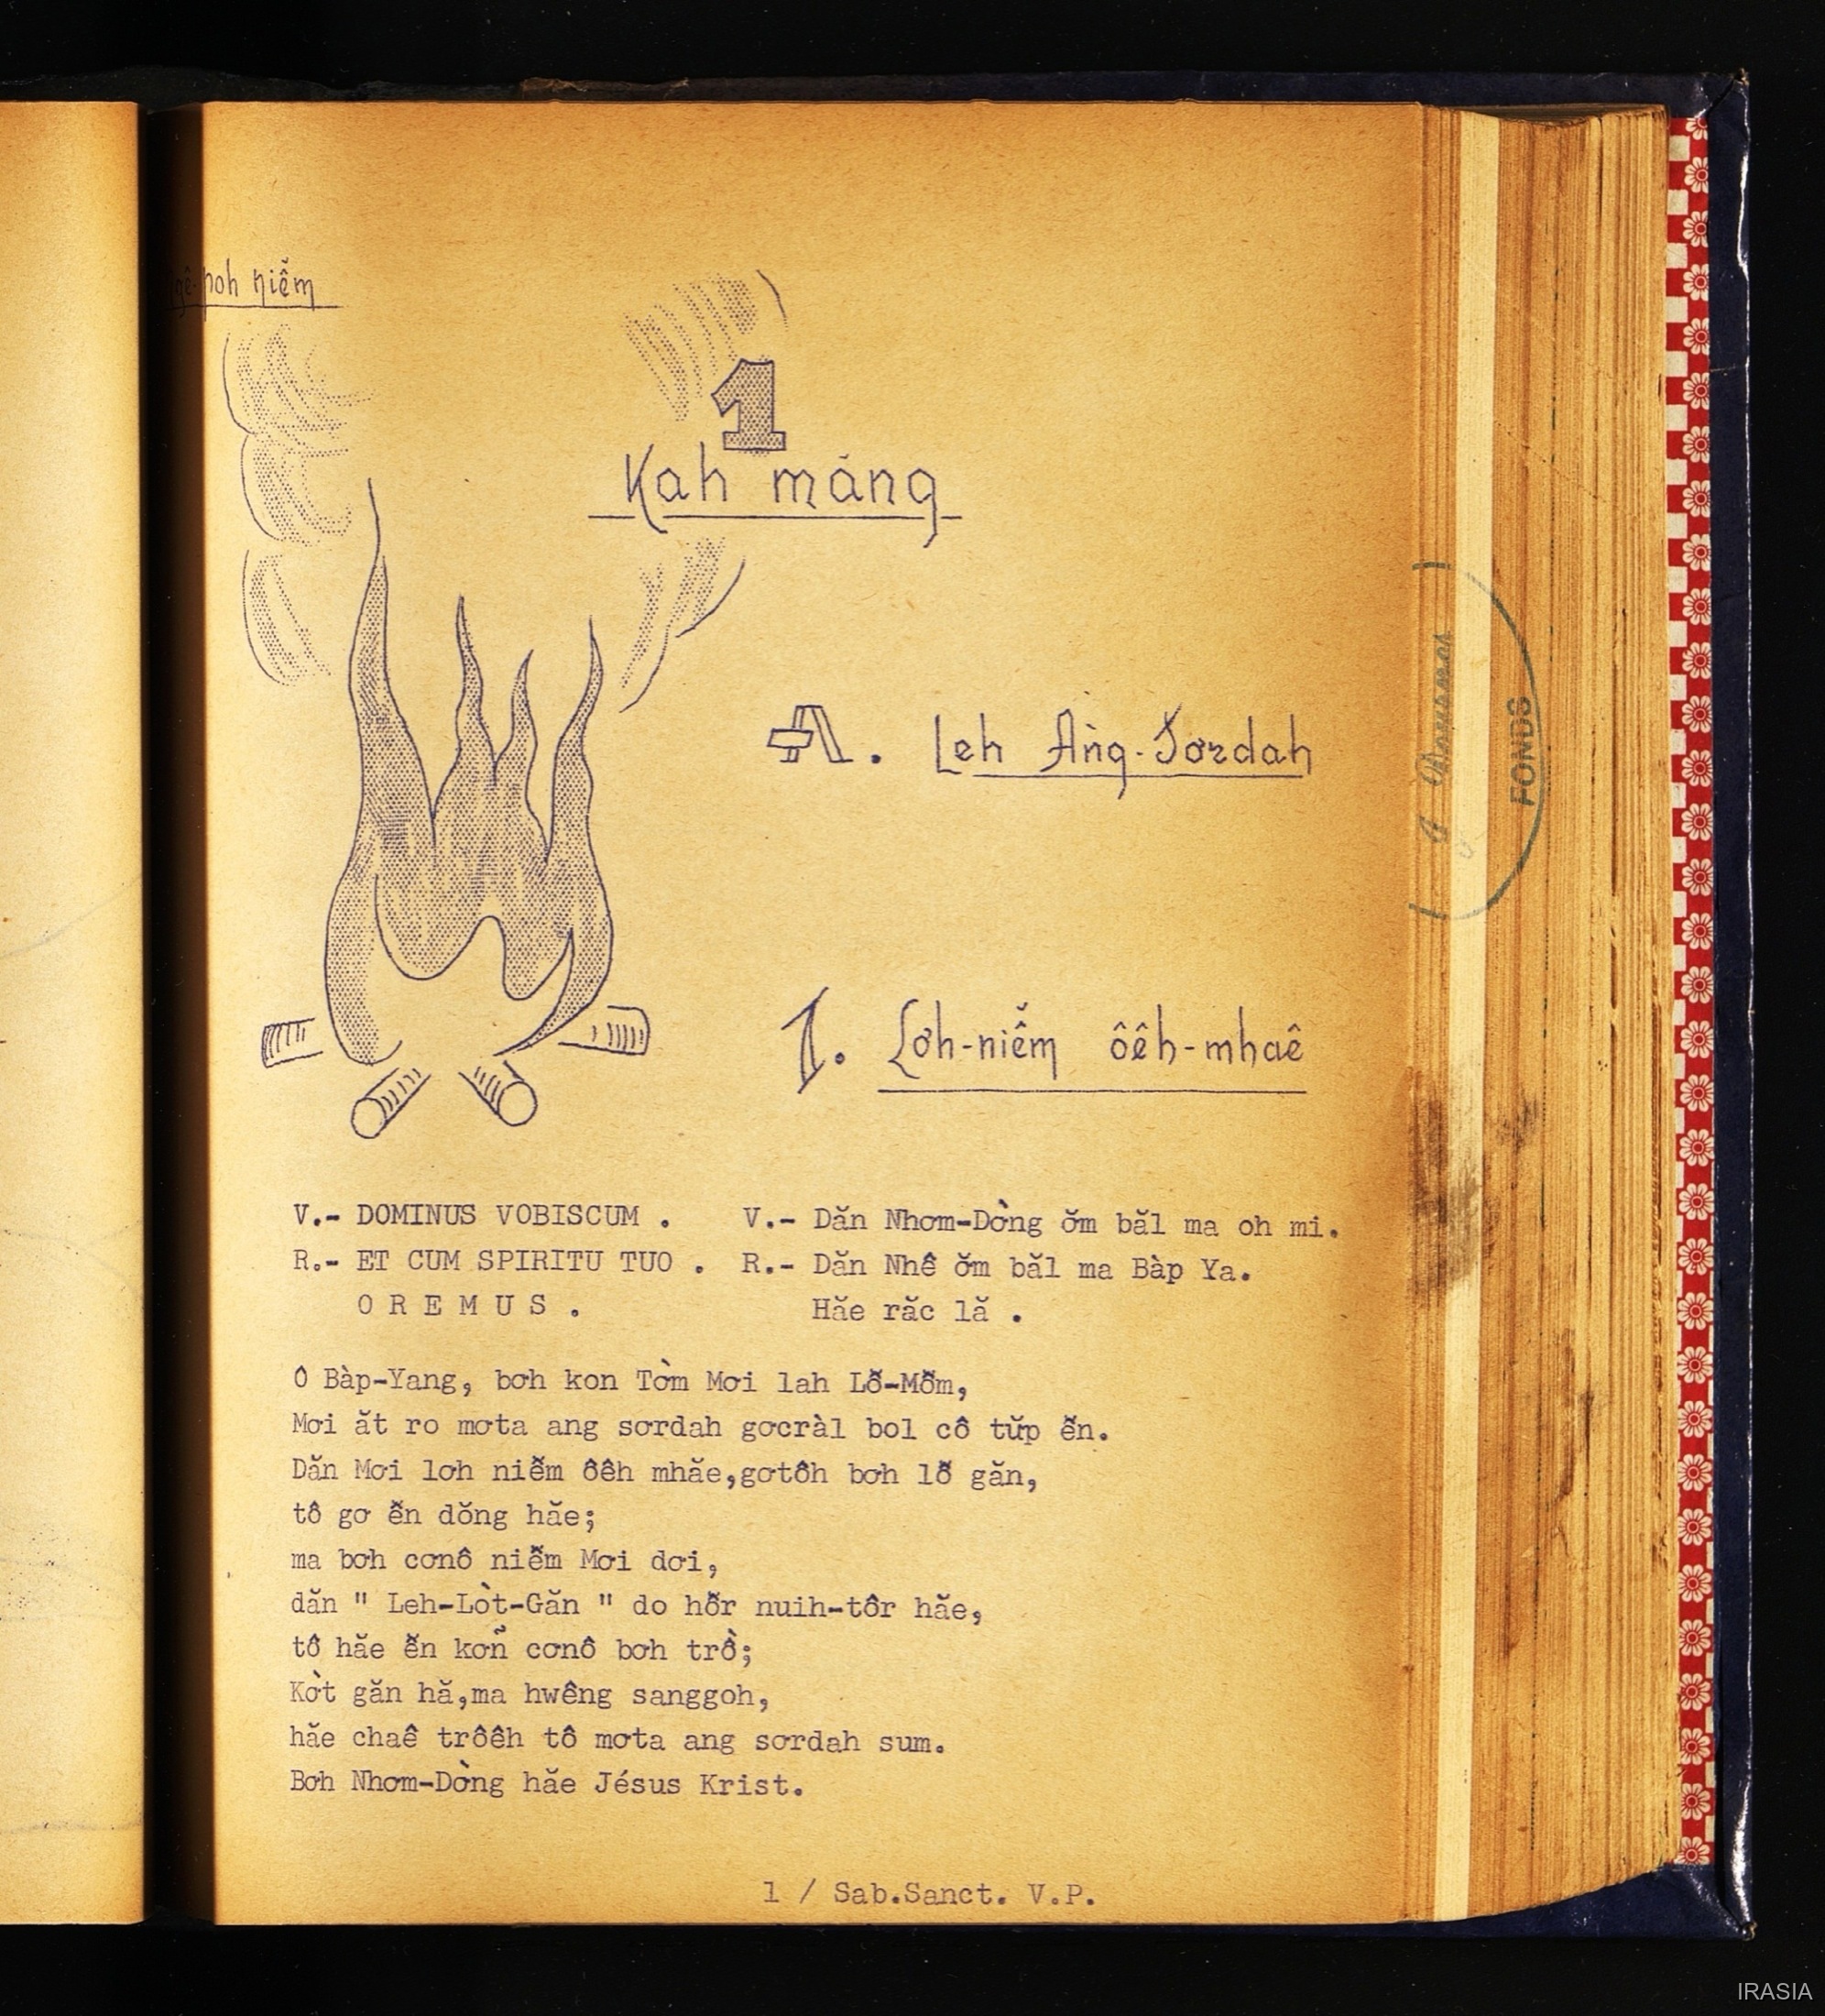 poh niễm
1
Kah máng
A. Leh Àng-Sơrdah
1. Lơh-niễm ôêh-mhaê
V.- DOMINUS VOBISCUM . V.- Dăn Nhơm-Dờng ờm băl ma oh mi.
R.- ET CUM SPIRITU TUO . R.- Dăn Nhê ờm băl ma Bàp Ya.
O R E M U S . Hăe răc lă .
O Bàp-Yang, bơh kon Tờm Mơi lah Lỗ-Mỗm,
Mơi ăt ro mơta ang sơrdah gơcràl bol cô tŭp ễn.
Dăn Mơi lơh niễm ôêh mhăe,gơtôh bơh lỗ găn,
tô gơ ễn dŏng hăe;
ma bơh cơnô niễm Mơi dơi,
dăn " Leh-Lòt-Găn " do hỗr nuih-tôr hăe,
tô hăe ễn kơn̉ cơnô bơh trồ;
Kờt găn hă,ma hwêng sanggoh,
hăe chaê trôêh tô mơta ang sơrdah sum.
Bơh Nhơm-Dờng hăe Jésus Krist.
1 / Sab.Sanct. V.P.
FONDS
IRASIA